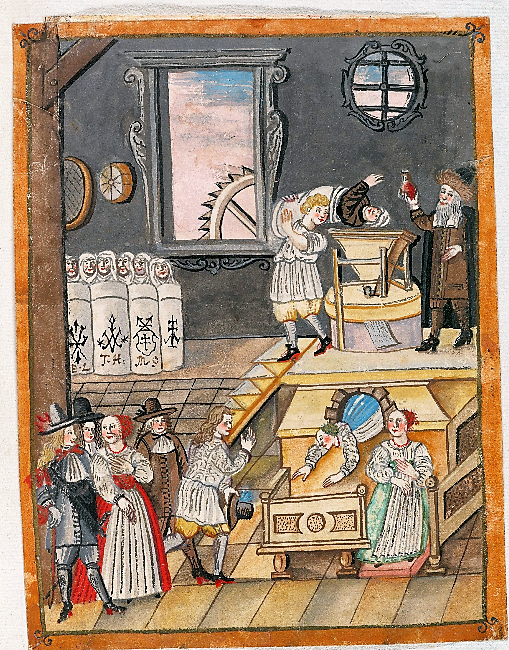 T H M S